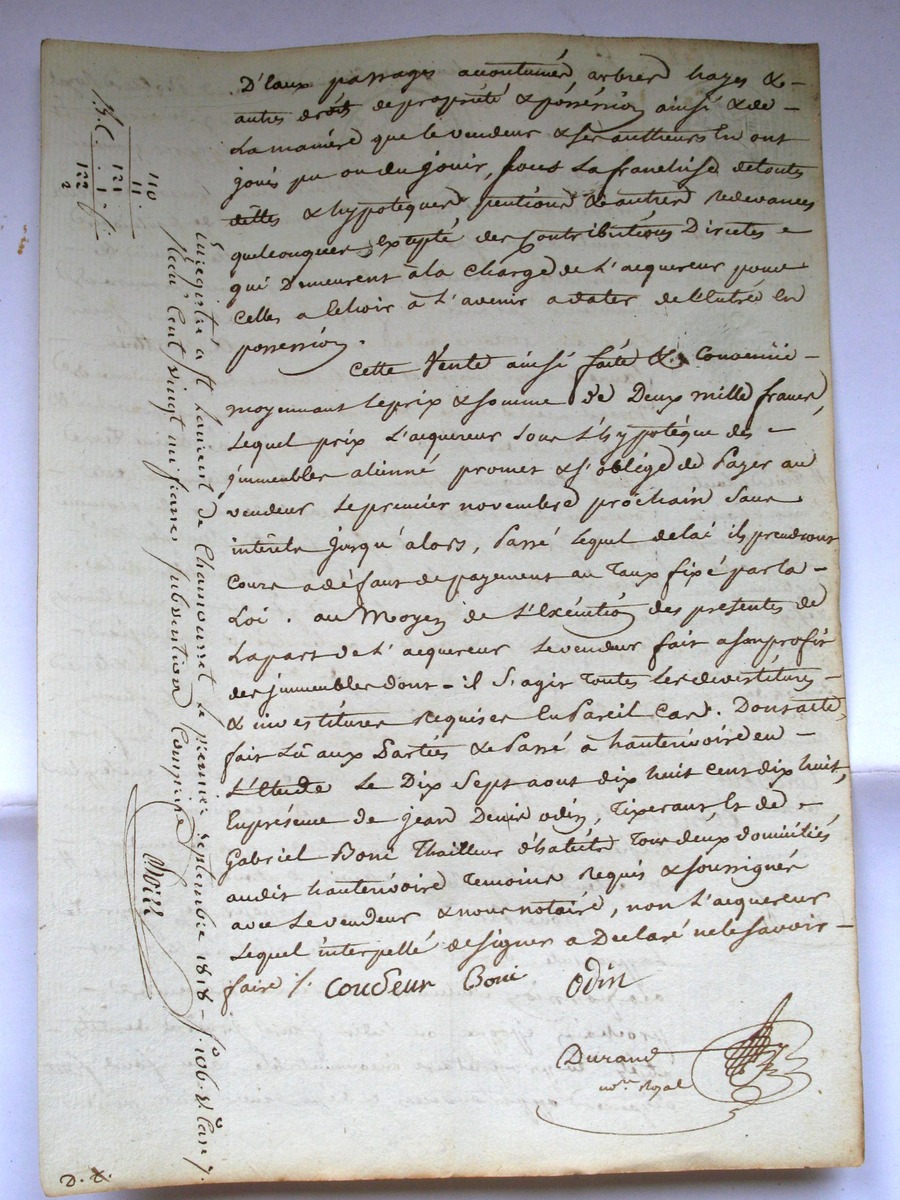 D'eaux passages accoutumés, arbres hayes &
autres droits de propriété & possession ainsi & de
la manière que le vendeur & ses autheurs en ont
jouis pu ou du jouir, sous la franchise de toutes
dettes & hypoteques pentions & autres redevances
quelconques, Excepté des Contributions Directes
qui Demeurent à la charge de l'acquereur pour
celles a echoir à l'avenir a dater de l'entrée en
possession.
Cette Vente ainsi faite & Convenüe
moyennant le prix & somme de Deux mille francs,
lequel prix l'acquereur sous l'hypotèque des
jmmeubles alienné promet & s'oblége de Payer au
vendeur le premier novembre prochain sans
intérêts jusqu'alors, Passé lequel delai ils prendront
Cours a défaut de payement au Taux fixé par la
Loi. au Moyen de l'Exécution des présentes de
la part de l'acquereur le vendeur fait a son profit
des jmmeubles dont il s'agit Toutes les devestitures
& investitures requises En Pareil Cas. Dont acte,
fait Lû aux Parties & Passé à hauterivoire en
l'Etude Le Dix Sept aout dix huit cent dix huit,
En présence de jean Denis odin, Tixerant, & de
Gabriel Boni Thailleur d'habits Tous deux domiciliés
audit hauterivoire Temoins Requis & soussignés
avec le vendeur & nous notaire, non l'acquereur
Lequel interpellé de signer a Declaré ne le savoir
faire /. Coudeur Boni Odin
Durand
nore Royal
D. &.
110
11
121
1
122
2
Enregistré a St Laurent de Chamousset le premier septembre 1818 fo 106
Reçu Cent vingt un francs subvention Comprise